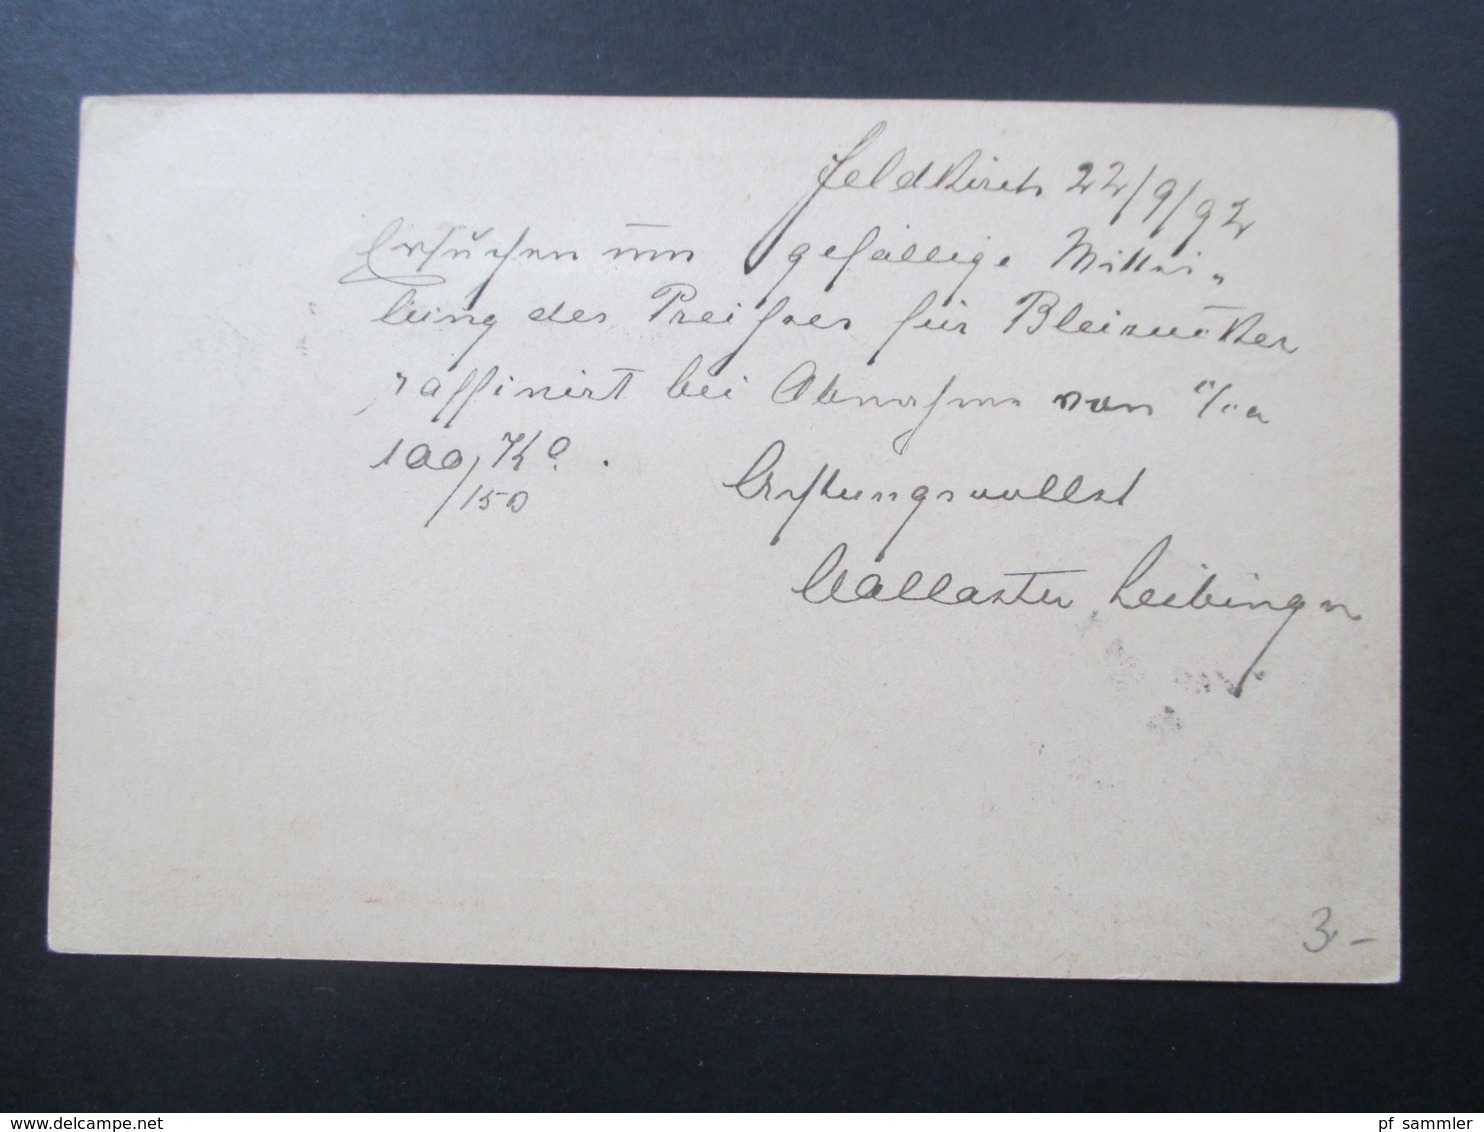 Feldkirch 22/9/92
Ersuchen um gefällige Mittei-
lung des Preises für Bleizucker
raffinirt bei Abnahme von
100 Ko.
/150
Achtungsvollst
Vallaster Leibinger
3,-
delcampe.net
pf_sammler